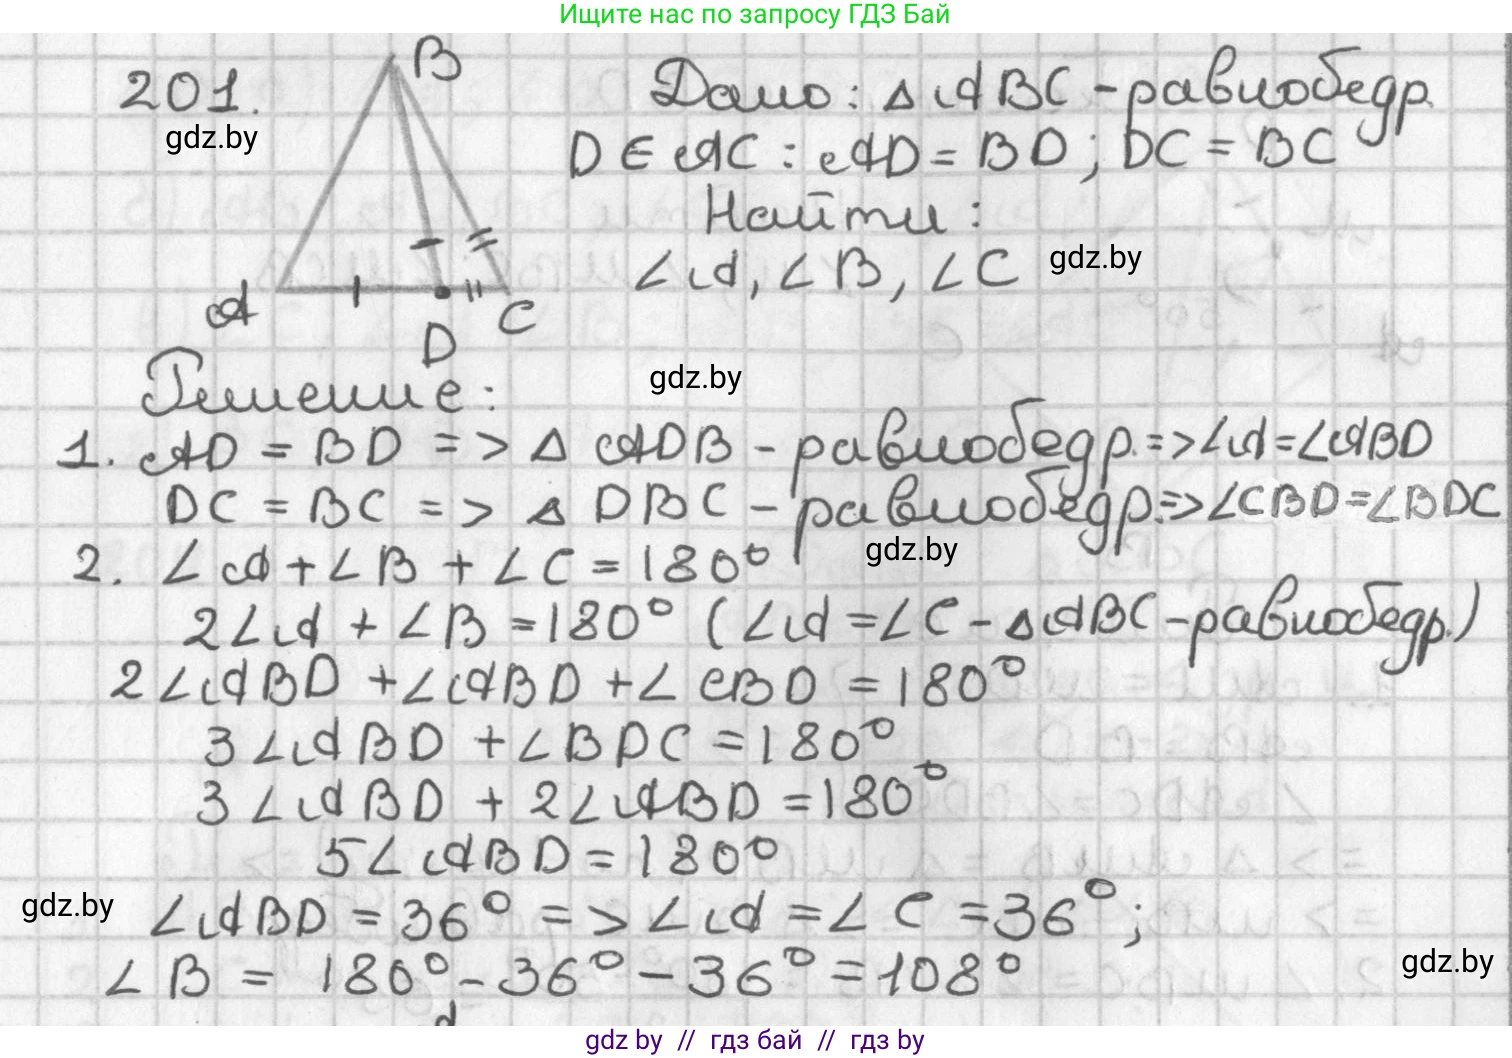 Ищите нас по запросу ГДЗ Бай
201.
B
gdz.by
A
D
C
Дано: △ABC - равнобедр.
D ∈ AC : AD = BD; DC = BC
Найти:
∠A, ∠B, ∠C
gdz.by
gdz.by
Решение:
1. AD = BD => △ ADB - равнобедр. => ∠A = ∠ABD
DC = BC => △ DBC - равнобедр. => ∠CBD = ∠BDC
gdz.by
2. ∠A + ∠B + ∠C = 180°
2∠A + ∠B = 180° (∠A = ∠C - △ABC - равнобедр.)
2∠ABD + ∠ABD + ∠CBD = 180°
3∠ABD + ∠BDC = 180°
3∠ABD + 2∠ABD = 180°
5∠ABD = 180°
gdz.by
∠ABD = 36° => ∠A = ∠C = 36°;
∠B = 180° - 36° - 36° = 108°
gdz.by
gdz by // гдз бай // гдз by